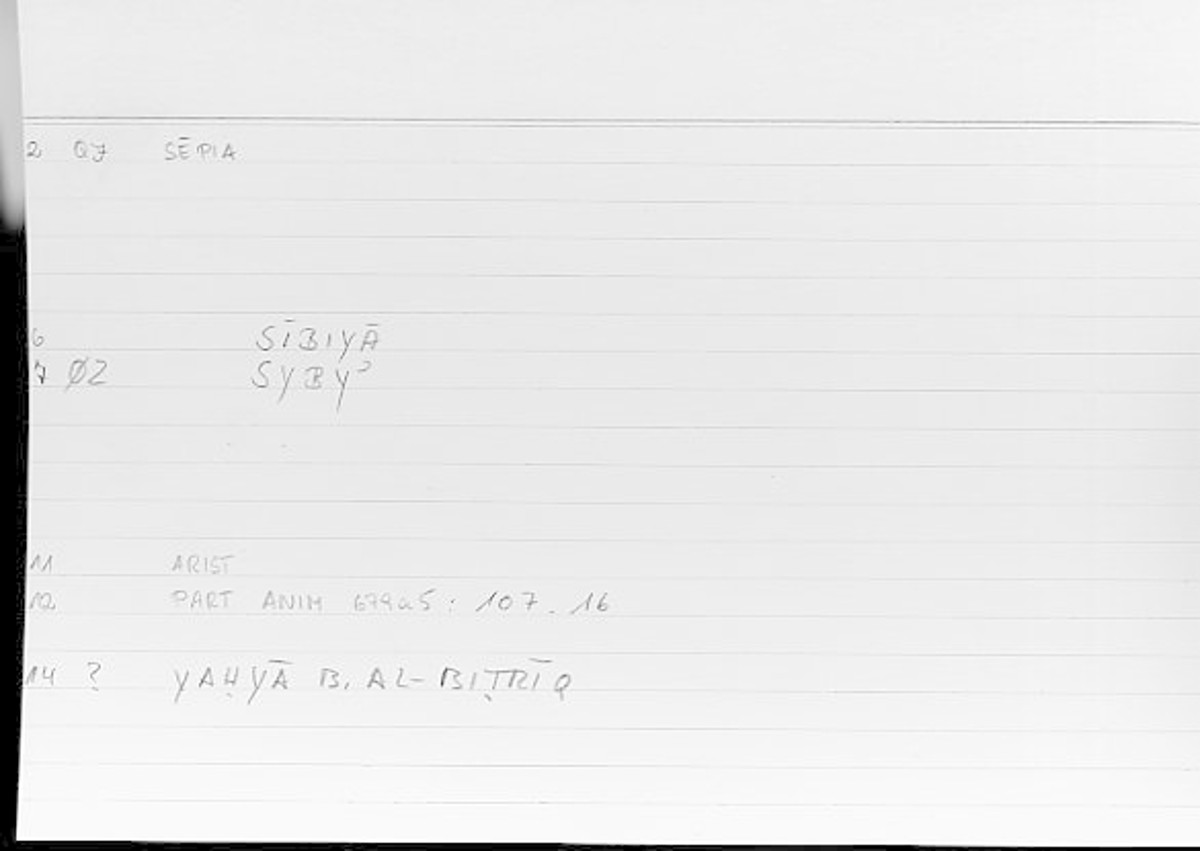 2 QJ SĒPIA
6 SĪBIYĀ
7 Ø2 SYBYʾ
11 ARIST
12 PART ANIM 679a5: 107.16
14 ? YAḤYĀ B. AL-BIṬRĪQ